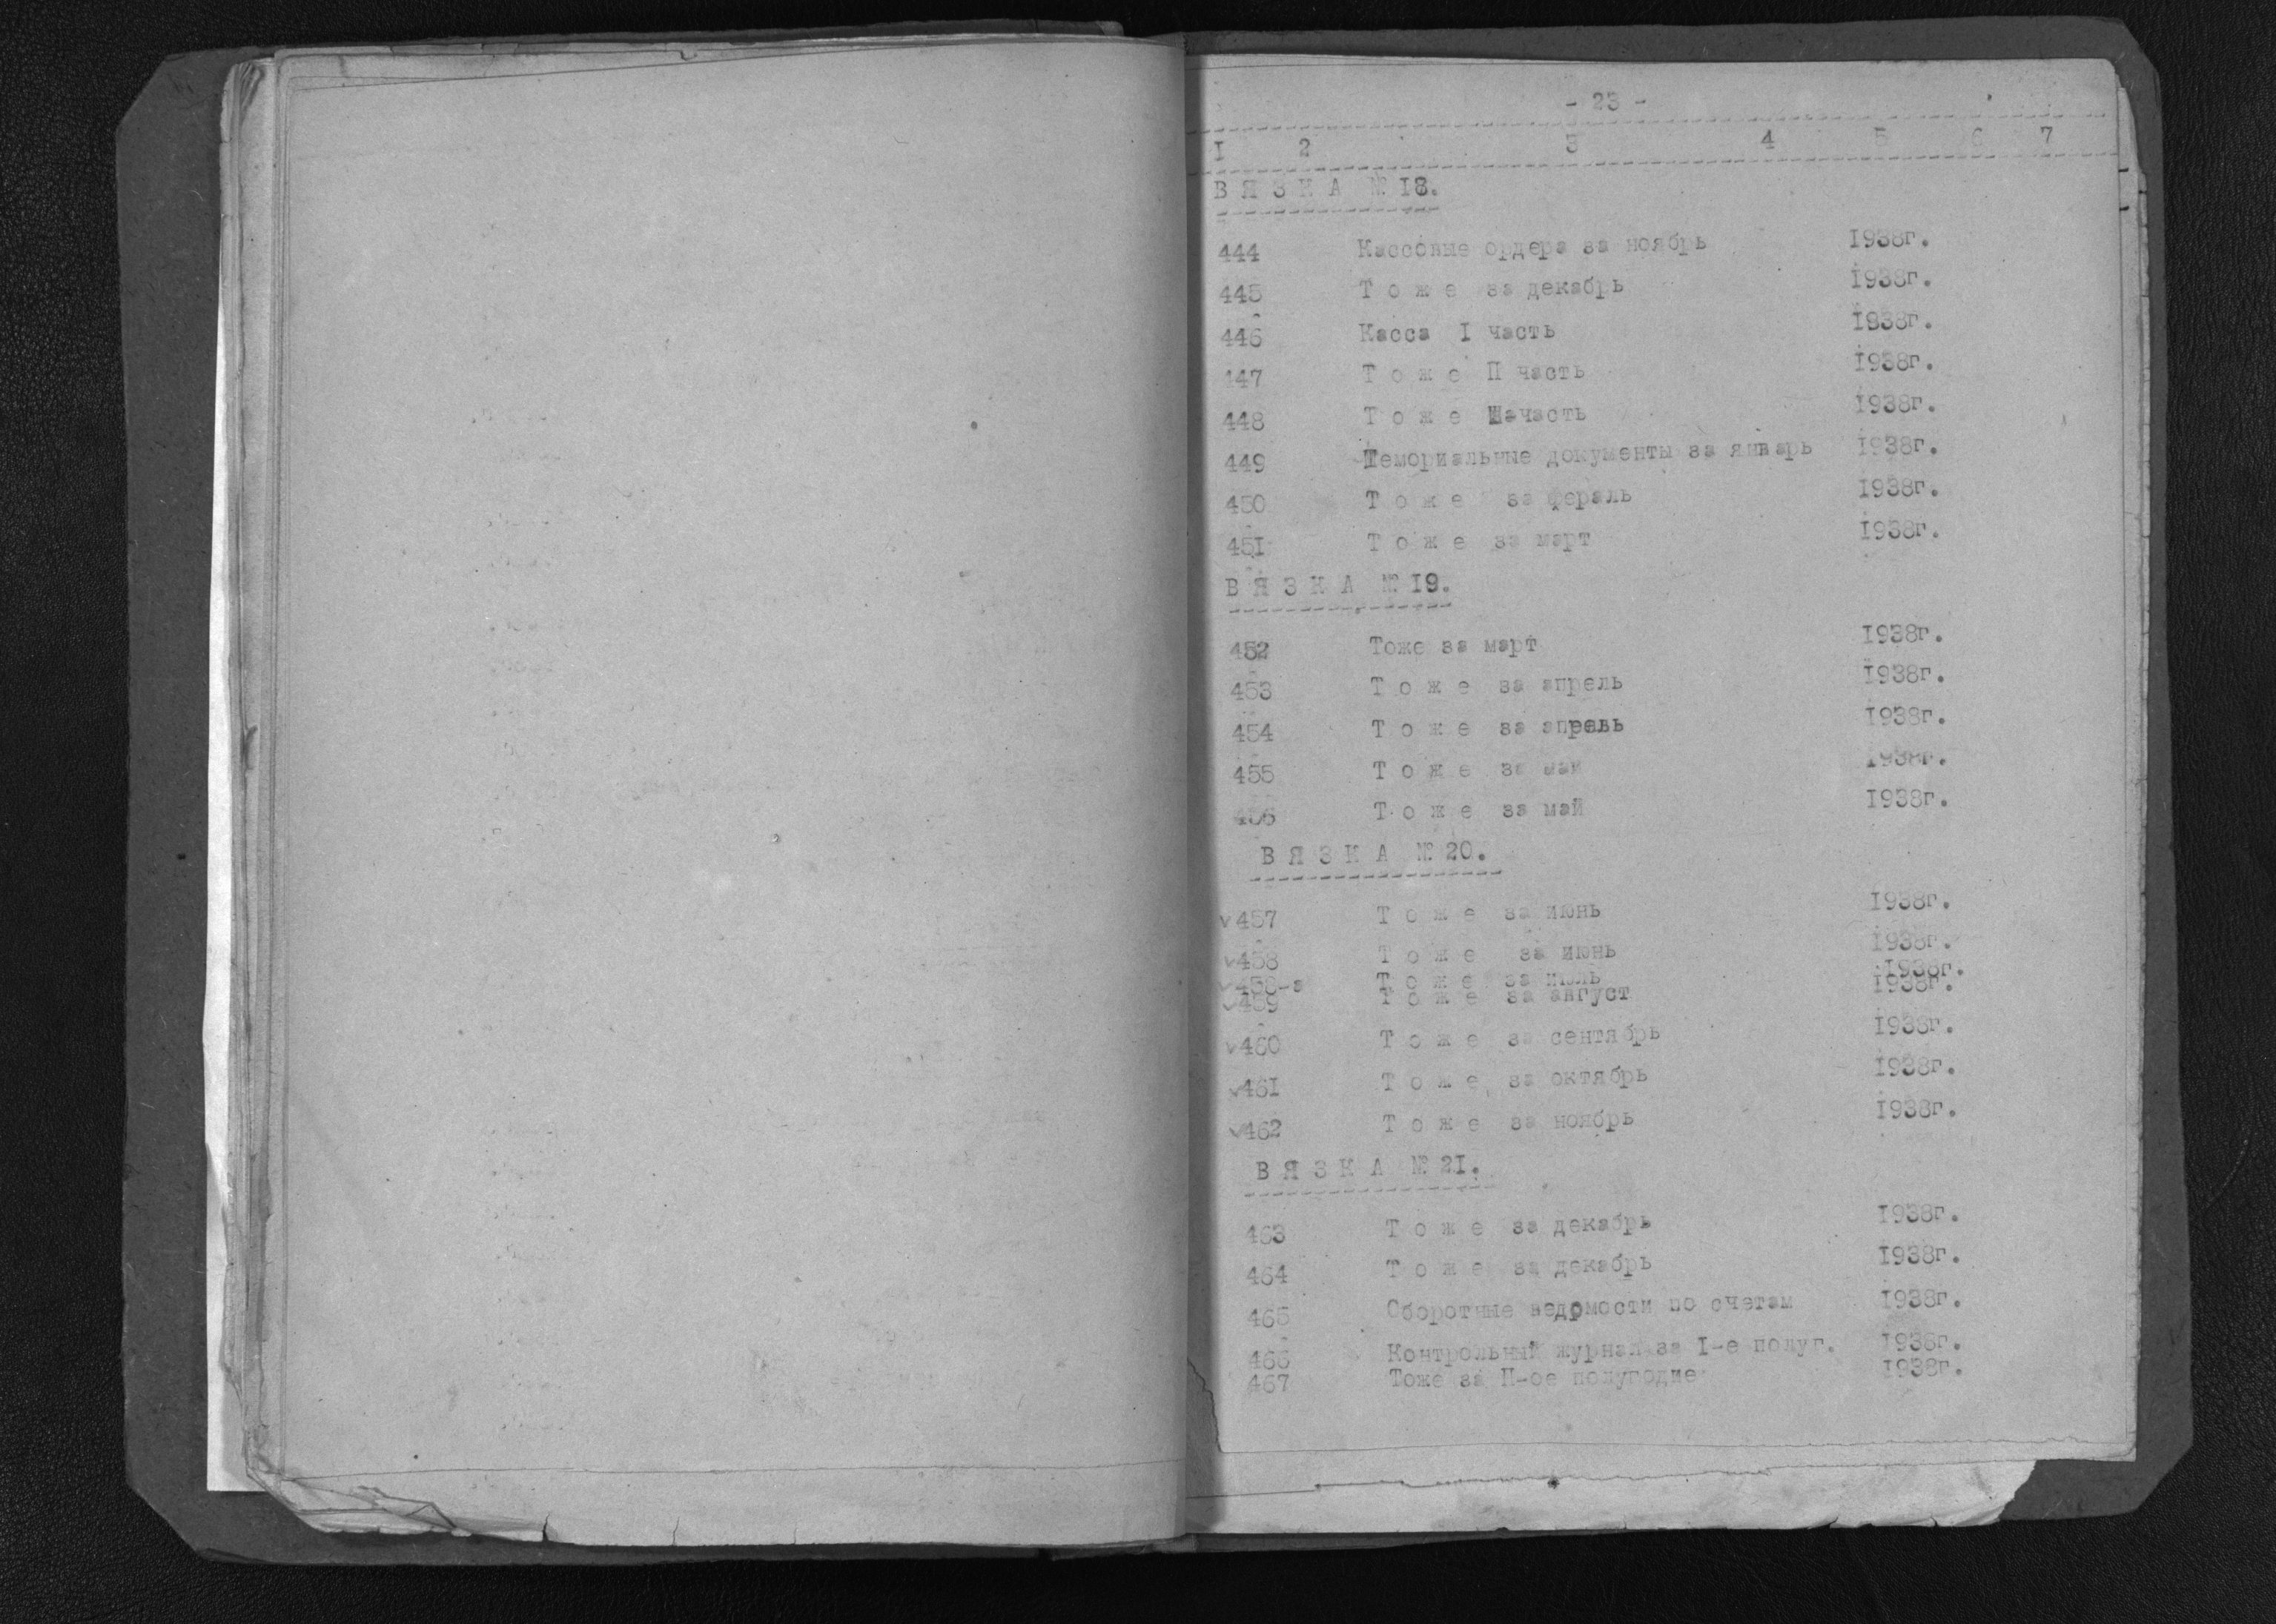 - 23 -
I 2 3 4 5 6 7
В Я З К А № I8.
444 Кассовые ордера за ноябрь I938г.
445 Т о ж е за декабрь I938г.
446 Касса I часть I938г.
447 Т о ж е П часть I938г.
448 Т о ж е Шачасть I938г.
449 Мемориальные документы за январь I938г.
450 Т о ж е за фераль I938г.
45I Т о ж е за март I938г.
В Я З К А № I9.
452 Тоже за март I938г.
453 Т о ж е за апрель I938г.
454 Т о ж е за апрель I938г.
455 Т о ж е за май I938г.
456 Т о ж е за май I938г.
В Я З К А № 20.
v 457 Т о ж е за июнь I938г.
v 458 Т о ж е за июнь I938г.
v 458-а Т о ж е за июль I938г.
v 459 Т о ж е за август I938г.
v 460 Т о ж е за сентябрь I938г.
v 46I Т о ж е за октябрь I938г.
v 462 Т о ж е за ноябрь I938г.
В Я З К А № 2I.
463 Т о ж е за декабрь I938г.
464 Т о ж е за декабрь I938г.
465 Оборотные ведомости по счетам I938г.
466 Контрольный журнал за I-е полуг. I938г.
467 Тоже за П-ое полугодие I938г.